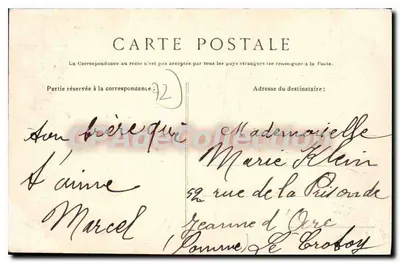 CARTE POSTALE
La Correspondance au recto n'est pas acceptée par tous les pays étrangers (se renseigner à la Poste.
Partie réservée à la correspondance
Adresse du destinataire:
72
ton frère qui
t'aime
Marcel
Mademoiselle
Marie Klein
52 rue de la Prison de
Jeanne d'Arc
(Somme) Le Crotoy